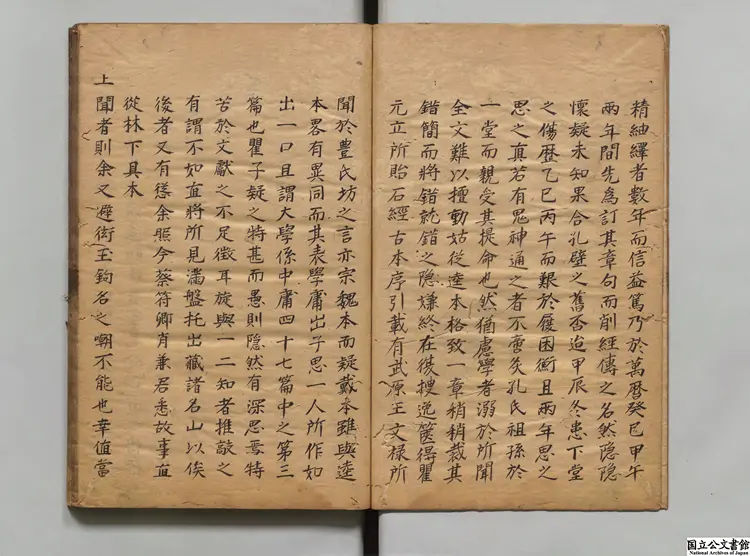 精紬繹者數年而信益篤乃於萬曆癸巳甲午
兩年間先為訂其章句而削經傳之名然隱隱
懷疑未知果合孔壁之舊否迨甲辰冬患下堂
之傷歷乙巳丙午而艱於履困衡且兩年思之
思之真若有鬼神通之者不啻矣孔氏祖孫於
一堂而親受其提命也然猶慮學者溺於所聞
全文難以擅動姑從逵本格致一章稍稍裁其
錯簡而將錯就錯之隱嫌終在後搜逸篋得瞿
元立所貽石經古本序引載有武原王文祿所
聞於豊氏坊之言亦宗魏本而疑戴本雖與逵
本畧有異同而其表學庸出子思一人所作如
出一口且謂大學係中庸四十七篇中之第三
篇也瞿子疑之特甚而愚則隠然有深思焉特
苦於文獻之不足徵耳旋與一二知者推敲之
有謂不如直將所見滿盤托出藏諸名山以俟
後者又有慫余照今蔡符卿肖兼君悉故事直
從林下具本
上聞者則余又避衒玉鈎名之嘲不能也幸值當
国立公文書館
National Archives of Japan